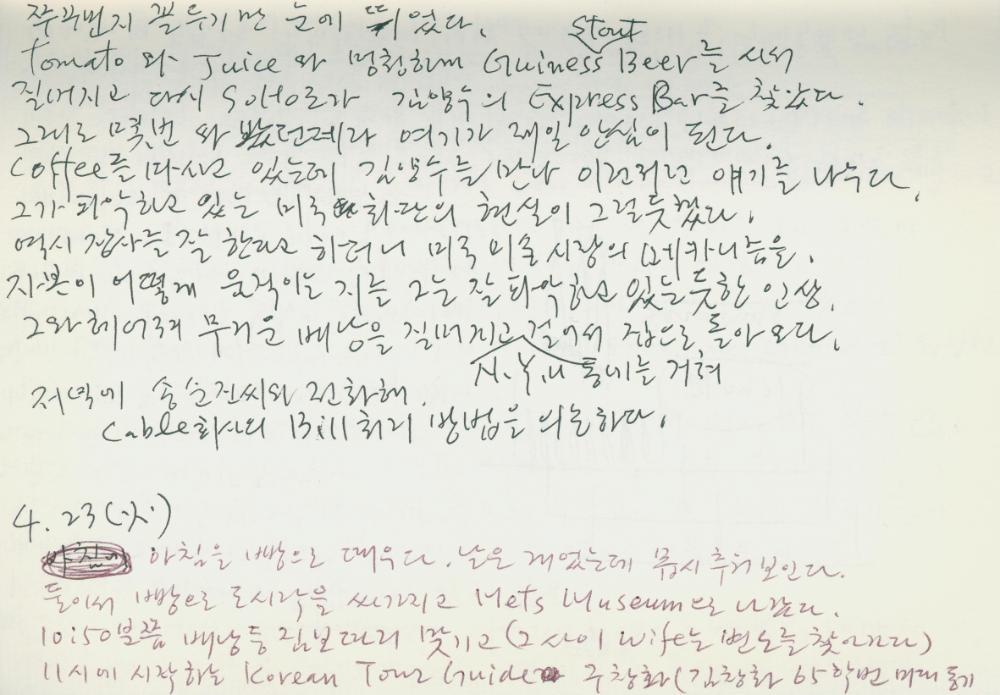 쭈꾸번지 꼴뚜기만 눈에 띄었다.
Stout
Tomato와 Juice와 멍청하며 Guiness Beer를 사서
질머지고 다시 SoHo로가 김영수의 Express Bar를 찾았다.
그래도 몇번 와 봤던데라 여기가 제일 안심이 된다.
Coffee를 마시고 있는데 김영수를 만나 이런저런 얘기를 나누다.
그가 파악하고 있는 미국 화단의 현실이 그럴듯했다.
역시 장사를 잘 한다고 하더니 미국 미술시장의 메카니즘을,
자본이 어떻게 움직이는 지를 그는 잘 파악하고 있는듯한 인상.
그와 헤어져 무거운 배낭을 질머지고 걸어서 집으로 돌아오다.
N.Y.U 동네를 거쳐
저녁에 송순진씨와 전화해.
Cable회사의 Bill처리 방법을 의논하다.
4. 23 (火)
아침을 빵으로 때우다. 날은 개었는데 몹시 추워 보인다.
둘이서 빵으로 도시락을 싸가지고 Mets Museum으로 나갔다.
10:50분쯤 배낭등 짐보따리 맞기고 (그 사이 wife는 변소를 찾아가다)
11시에 시작하는 Korean Tour Guide 구창화 (김창화 65학번 미대 동기